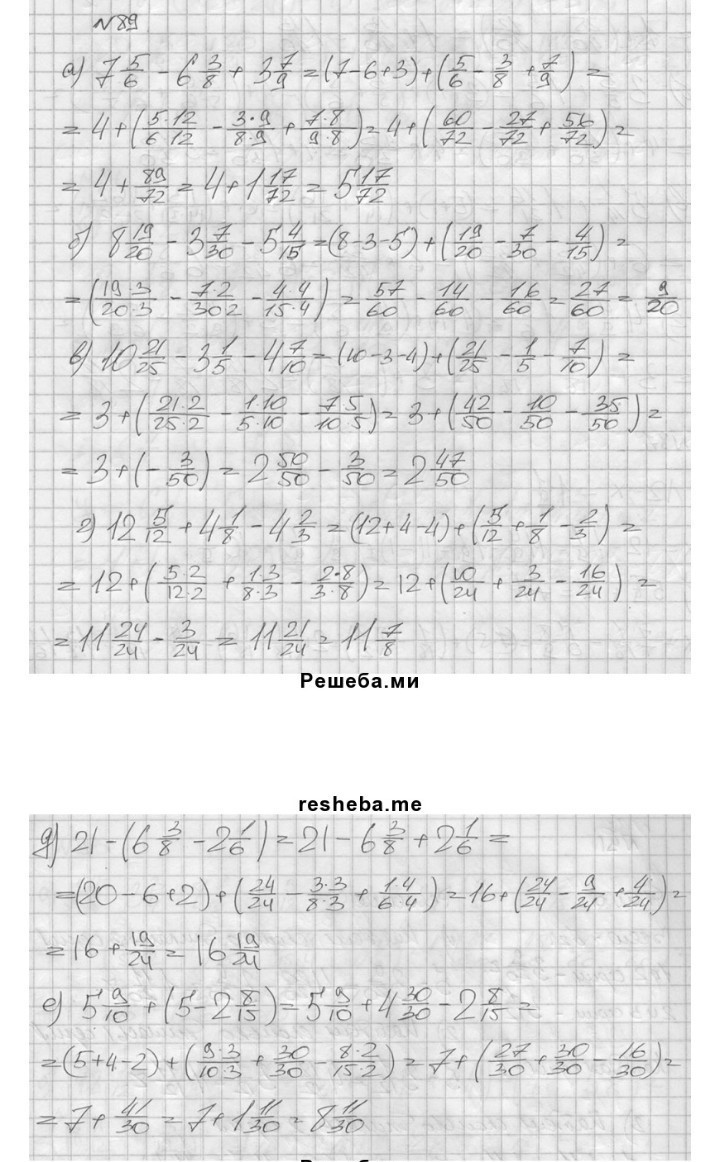 №89
а) 7 5/6 - 6 3/8 + 3 7/9 = (7-6+3) + (5/6 - 3/8 + 7/9) =
= 4 + (5·12/6·12 - 3·9/8·9 + 7·8/9·8) = 4 + (60/72 - 27/72 + 56/72) =
= 4 + 89/72 = 4 + 1 17/72 = 5 17/72
б) 8 19/20 - 3 7/30 - 5 4/15 = (8-3-5) + (19/20 - 7/30 - 4/15) =
= (19·3/20·3 - 7·2/30·2 - 4·4/15·4) = 57/60 - 14/60 - 16/60 = 27/60 = 9/20
в) 10 21/25 - 3 1/5 - 4 7/10 = (10-3-4) + (21/25 - 1/5 - 7/10) =
= 3 + (21·2/25·2 - 1·10/5·10 - 7·5/10·5) = 3 + (42/50 - 10/50 - 35/50) =
= 3 + (-3/50) = 2 50/50 - 3/50 = 2 47/50
г) 12 5/12 + 4 1/8 - 4 2/3 = (12+4-4) + (5/12 + 1/8 - 2/3) =
= 12 + (5·2/12·2 + 1·3/8·3 - 2·8/3·8) = 12 + (10/24 + 3/24 - 16/24) =
= 11 24/24 - 3/24 = 11 21/24 = 11 7/8
Решеба.ми
resheba.me
д) 21 - (6 3/8 - 2 1/6) = 21 - 6 3/8 + 2 1/6 =
= (20-6+2) + (24/24 - 3·3/8·3 + 1·4/6·4) = 16 + (24/24 - 9/24 + 4/24) =
= 16 + 19/24 = 16 19/24
е) 5 9/10 + (5 - 2 8/15) = 5 9/10 + 4 30/30 - 2 8/15 =
= (5+4-2) + (9·3/10·3 + 30/30 - 8·2/15·2) = 7 + (27/30 + 30/30 - 16/30) =
= 7 + 41/30 = 7 + 1 11/30 = 8 11/30